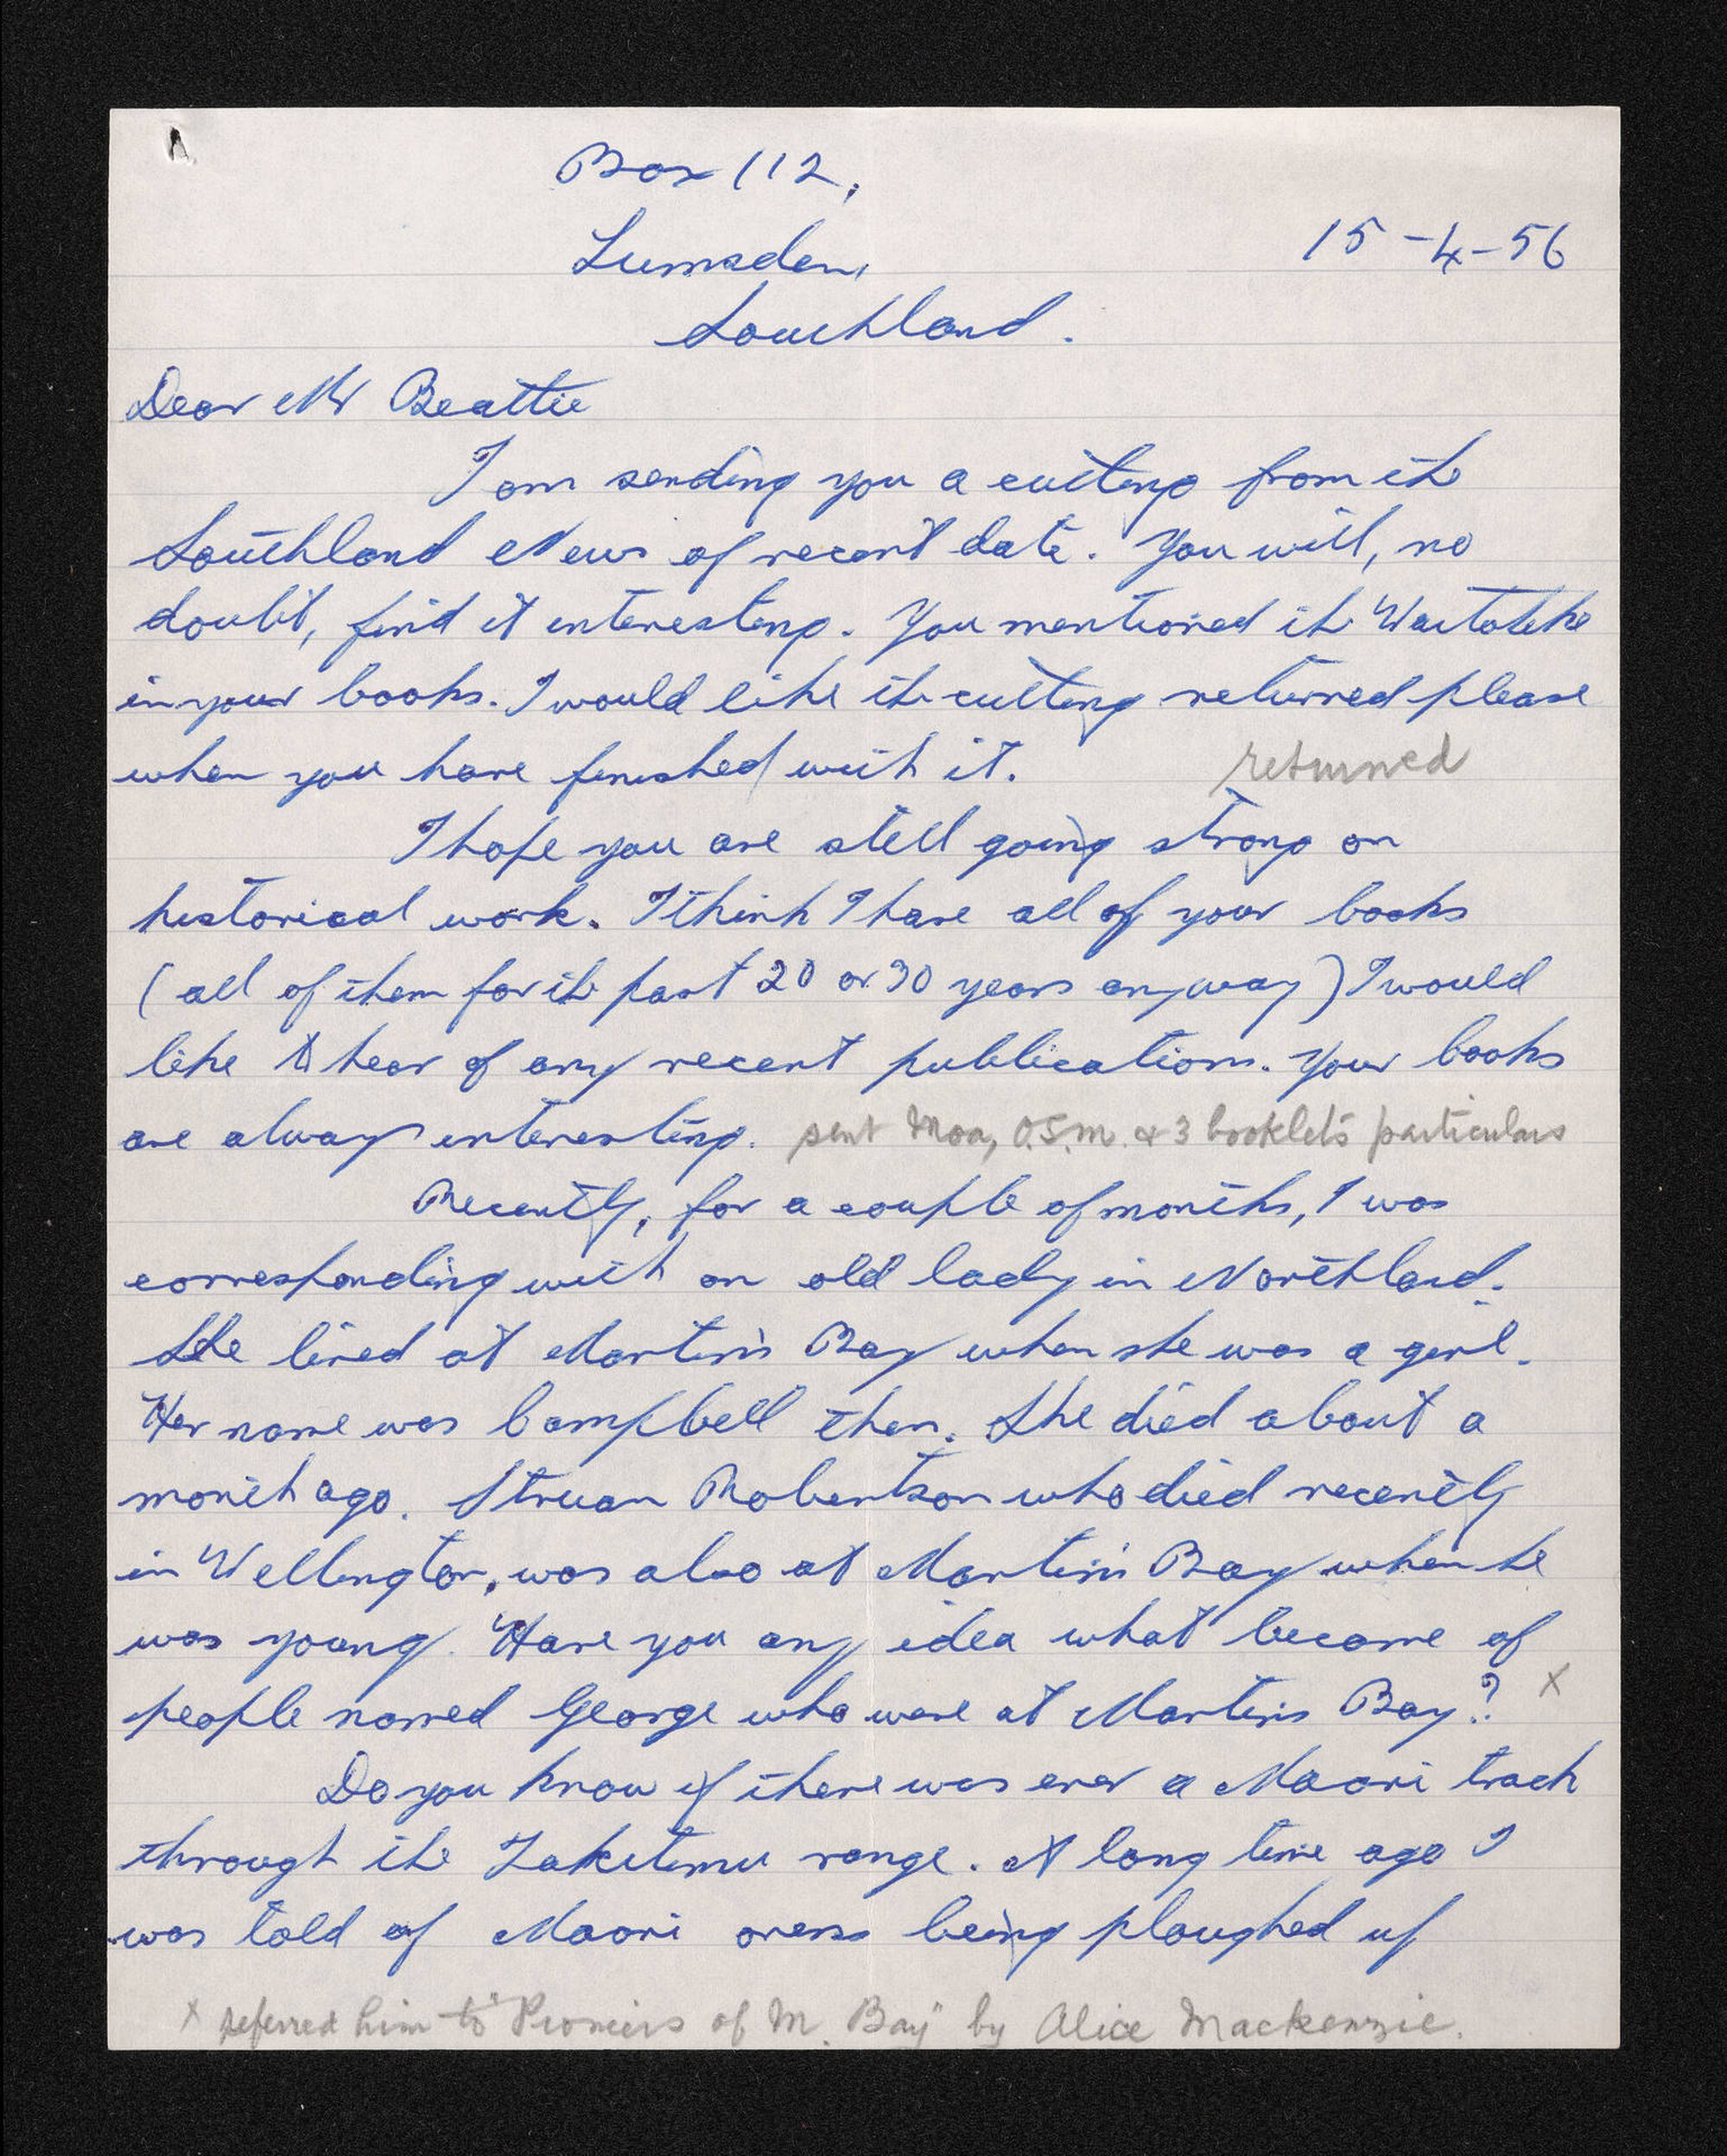 Box 112,
Lumsden,
15-4-56
Southland.
Dear Mr Beattie
I am sending you a cutting from the
Southland News of recent date. You will, no
doubt, find it interesting. You mentioned the
in your books. I would like the cutting returned please
when you have finished with it.
returned
I hope you are still going strong on
historical work. I think I have all of your books
(all of them for the past 20 or 30 years anyway) I would
like to hear of any recent publications. Your books
are always interesting. sent Moa, O.S.M. & 3 booklets particulars
Recently, for a couple of months, I was
corresponding with an old lady in Northland.
She lived at Martin's Bay when she was a girl.
Her name was Campbell then. She died about a
month ago. Struan Robertson who died recently
in Wellington, was also at Martin's Bay when he
was young. Have you any idea what became of
people named George who were at Martins Bay? x
Do you know if there was ever a Maori track
through the Takitimu range. A long time ago I
was told of Maori ovens being ploughed up
x referred him to "Pioneers of M. Bay" by Alice Mackenzie.